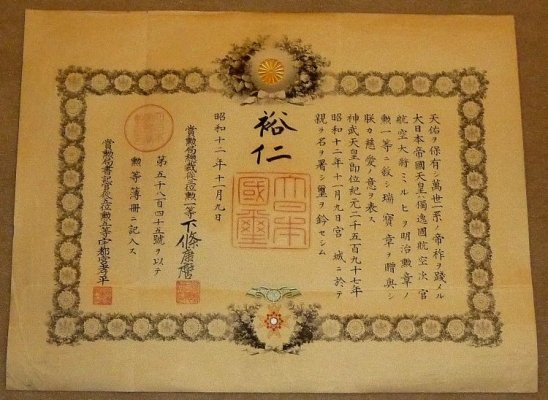 天佑ヲ保有シ萬世一系ノ帝祚ヲ踐メル
大日本帝國天皇獨逸國航空次官
航空大將ミルヒヲ明治勲章ノ
勲一等ニ敍シ瑞寶章ヲ贈與シ
朕カ慈愛ノ意ヲ表ス
神武天皇即位紀元二千五百九十七年
昭和十二年十一月九日宮城ニ於テ
親ラ名ヲ署シ璽ヲ鈐セシム
裕仁
大日本
國璽
昭和十二年十一月九日
賞勲局總裁從三位勲一等下條康麿
第五千八百四十五號ヲ以テ
勲等簿冊ニ記入ス
賞勲局書記官
宇都宮孝平